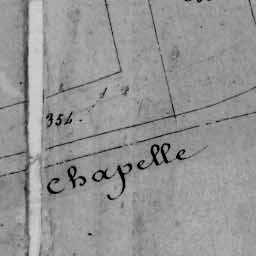 354.
chapelle